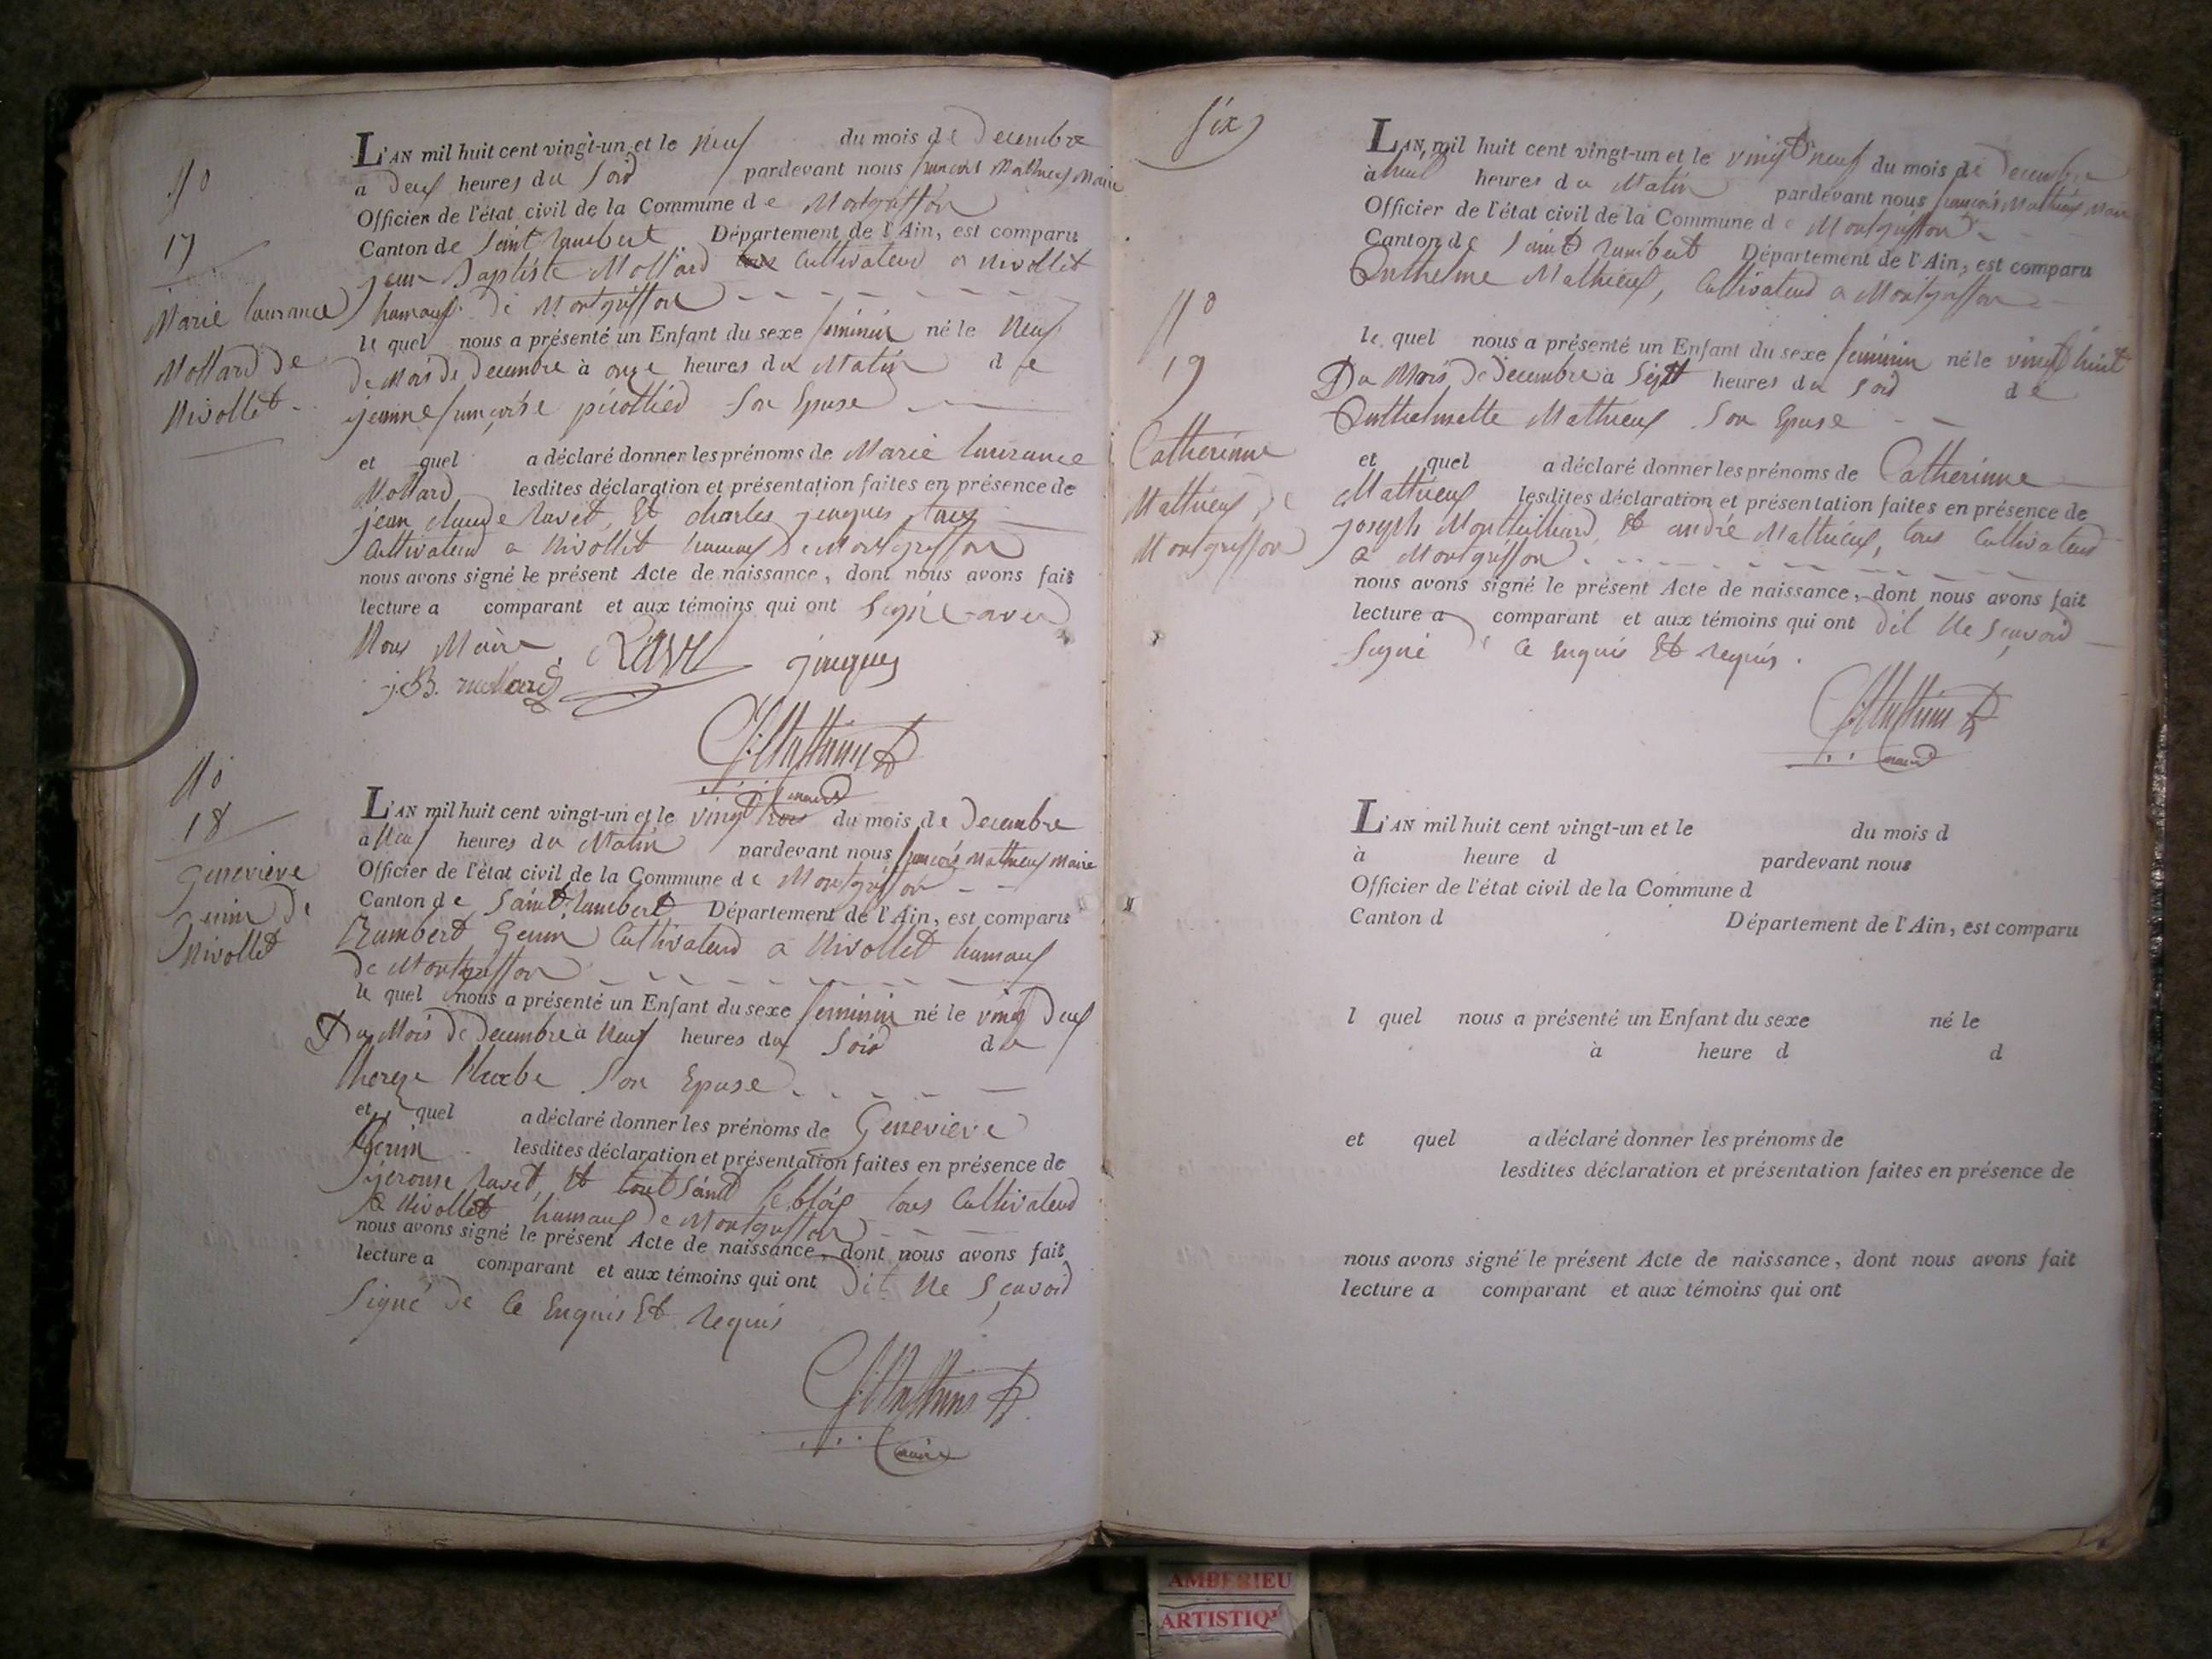 N° 17
Marie laurance
Mottard de
Nivollet
L'AN mil huit cent vingt-un et le Neuf du mois de Decembre
a Deux heures du Soir pardevant nous françois Mathieux Maire
Officier de l'état civil de la Commune de Montgriffon
Canton de Saint rambert Département de l'Ain, est comparu
jean Baptiste Mottard Cultivateur a Nivollet
hamaux de Montgriffon
le quel nous a présenté un Enfant du sexe feminin né le Neuf
de Mois de Decembre à onze heures du Matin de
jeanne françoise Son Epuse
et quel a déclaré donner les prénoms de Marie laurance
Mottard lesdites déclaration et présentation faites en présence de
jean claude ravet, Et charles jacques
Cultivateur a Nivollet hamaux de Montgriffon
nous avons signé le présent Acte de naissance, dont nous avons fait
lecture a comparant et aux témoins qui ont Signé avec
Nous Maire Ravet jacques
j. B. mottard
Mathieux
maire
N° 18
Genevieve
Genin de
Nivollet
L'AN mil huit cent vingt-un et le vingt trois du mois de Decembre
a Neuf heures du Matin pardevant nous françois Mathieux Maire
Officier de l'état civil de la Commune de Montgriffon
Canton de Saint rambert Département de l'Ain, est comparu
Rambert Genin Cultivateur a Nivollet hamaux
de Montgriffon
le quel nous a présenté un Enfant du sexe feminin né le vingt Deux
Du Mois de Decembre à Neuf heures du Soir de
therese Son Epuse
et quel a déclaré donner les prénoms de Genevieve
Genin lesdites déclaration et présentation faites en présence de
jerome ravet, Et tout Saint tous Cultivateur
a Nivollet hamaux de Montgriffon
nous avons signé le présent Acte de naissance, dont nous avons fait
lecture a comparant et aux témoins qui ont Dit Ne Sçavoir
Signé de Ce Enquis Et requis
Mathieux
maire
Six
N° 19
Catherinne
Mathieux de
Montgriffon
L'AN mil huit cent vingt-un et le vingt neuf du mois de Decembre
à heures du Matin pardevant nous françois Mathieux Maire
Officier de l'état civil de la Commune de Montgriffon
Canton de Saint rambert Département de l'Ain, est comparu
Anthelme Mathieux, Cultivateur a Montgriffon
le quel nous a présenté un Enfant du sexe feminin né le vingt huit
Du Mois de Decembre à Sept heures du Soir de
Anthelmette Mathieux Son Epuse
et quel a déclaré donner les prénoms de Catherinne
Mathieux lesdites déclaration et présentation faites en présence de
joseph Et andré Mathieux, tous Cultivateur
a Montgriffon
nous avons signé le présent Acte de naissance, dont nous avons fait
lecture a comparant et aux témoins qui ont dit Ne Sçavoir
Signé de Ce Enquis Et requis.
Mathieux
maire
L'AN mil huit cent vingt-un et le du mois d
à heure d pardevant nous
Officier de l'état civil de la Commune d
Canton d Département de l'Ain, est comparu
l quel nous a présenté un Enfant du sexe né le
à heure d d
et quel a déclaré donner les prénoms de
lesdites déclaration et présentation faites en présence de
nous avons signé le présent Acte de naissance, dont nous avons fait
lecture a comparant et aux témoins qui ont
AMBERIEU
ARTISTIQ